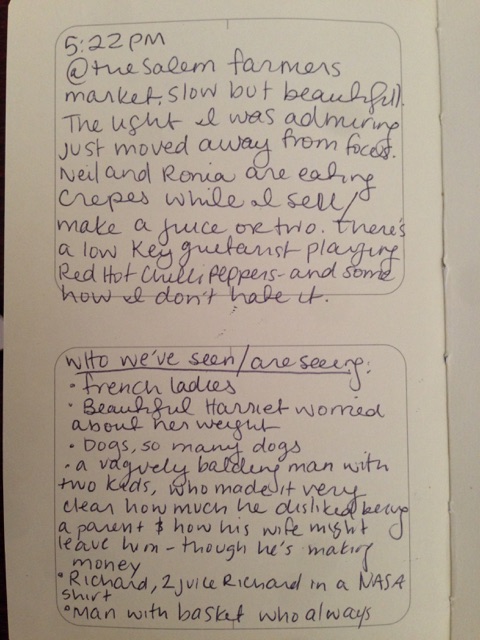 5:22PM
@the Salem farmers
market, slow but beautiful.
The light I was admiring
just moved away from focus.
Neil and Ronia are eating
crepes while I sell/
make a juice or two. There's
a low key guitarist playing
Red Hot Chilli Peppers - and some
how I don't hate it.
Who we've seen/are seeing:
• French ladies
• Beautiful Harriet worried
about her weight
• Dogs, so many dogs
• a vaguely balding man with
two kids, who made it very
clear how much he disliked being
a parent & how his wife might
leave him - though he's making
money
• Richard, 2 juice Richard in a NASA
shirt
• Man with basket who always